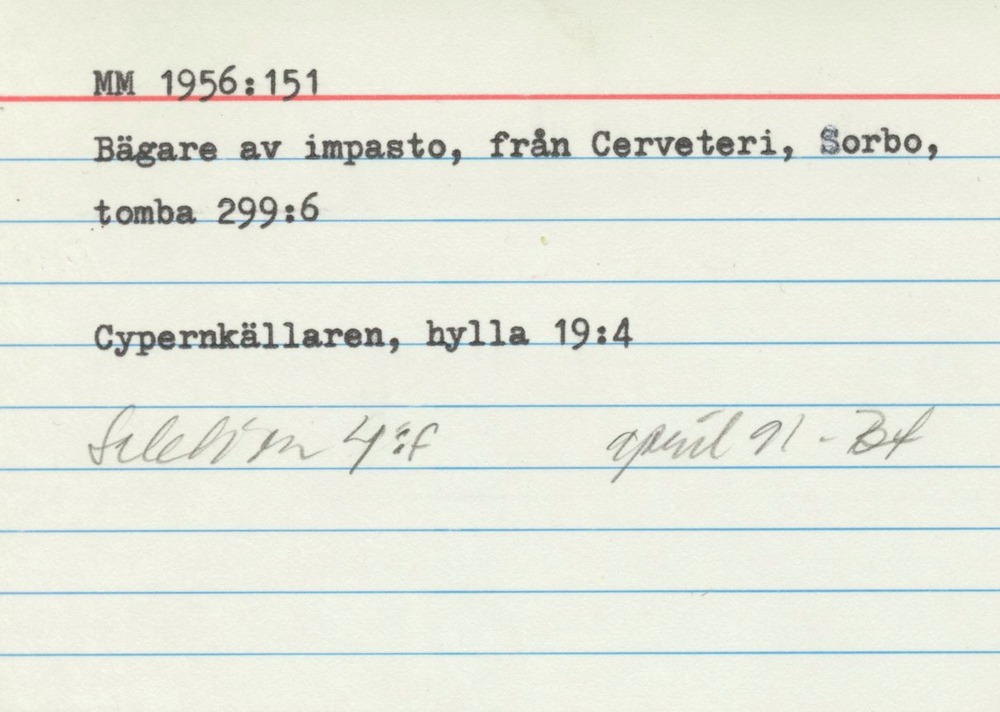 MM 1956:151
Bägare av impasto, från Cerveteri, Sorbo,
tomba 299:6
Cypernkällaren, hylla 19:4
Selektion 4:f april 91 -